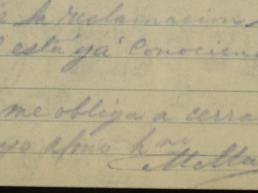 la reclamacion
está yá conocien
me obliga a cerra
afmo h.no